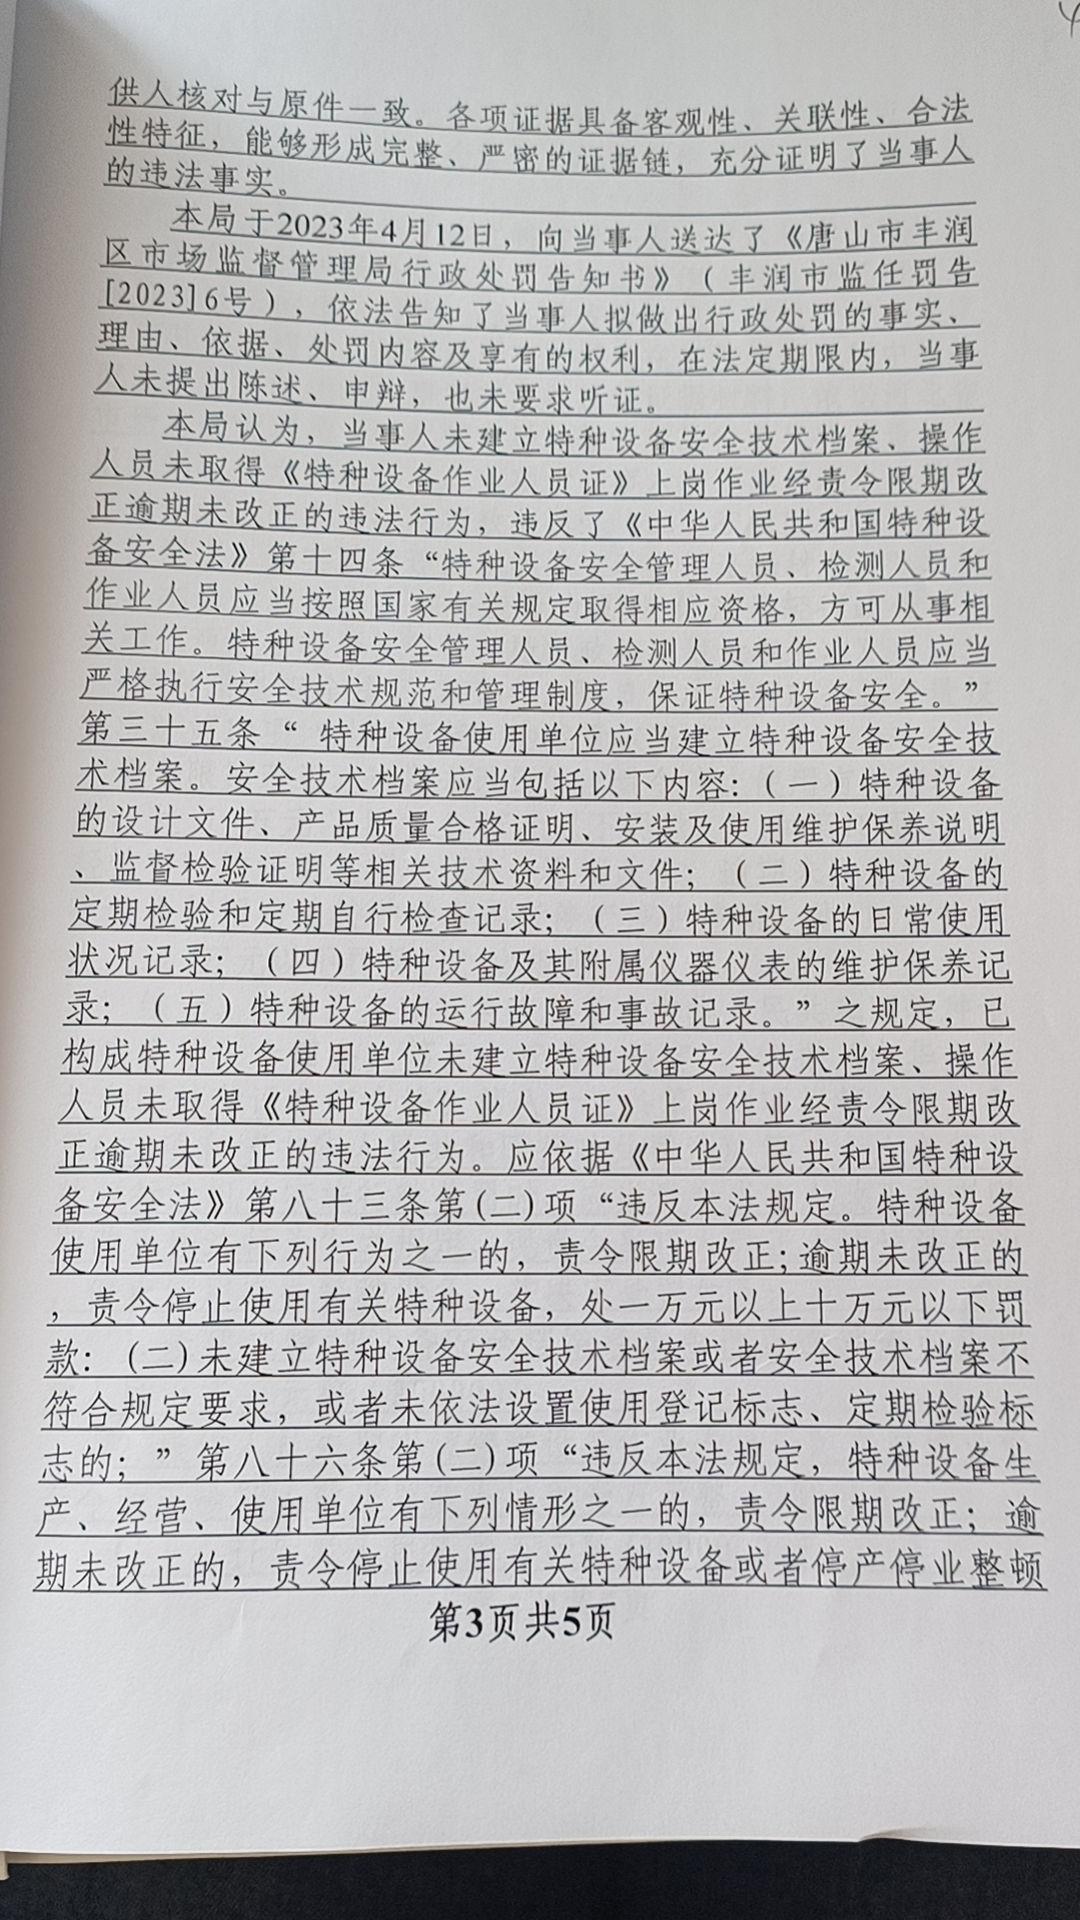 供人核对与原件一致。各项证据具备客观性、关联性、合法
性特征，能够形成完整、严密的证据链，充分证明了当事人
的违法事实。
本局于2023年4月12日，向当事人送达了《唐山市丰润
区市场监督管理局行政处罚告知书》（丰润市监任罚告
[2023]6号），依法告知了当事人拟做出行政处罚的事实、
理由、依据、处罚内容及享有的权利，在法定期限内，当事
人未提出陈述、申辩，也未要求听证。
本局认为，当事人未建立特种设备安全技术档案、操作
人员未取得《特种设备作业人员证》上岗作业经责令限期改
正逾期未改正的违法行为，违反了《中华人民共和国特种设
备安全法》第十四条“特种设备安全管理人员、检测人员和
作业人员应当按照国家有关规定取得相应资格，方可从事相
关工作。特种设备安全管理人员、检测人员和作业人员应当
严格执行安全技术规范和管理制度，保证特种设备安全。”
第三十五条“ 特种设备使用单位应当建立特种设备安全技
术档案。安全技术档案应当包括以下内容:（一）特种设备
的设计文件、产品质量合格证明、安装及使用维护保养说明
、监督检验证明等相关技术资料和文件;（二）特种设备的
定期检验和定期自行检查记录;（三）特种设备的日常使用
状况记录;（四）特种设备及其附属仪器仪表的维护保养记
录;（五）特种设备的运行故障和事故记录。”之规定，已
构成特种设备使用单位未建立特种设备安全技术档案、操作
人员未取得《特种设备作业人员证》上岗作业经责令限期改
正逾期未改正的违法行为。应依据《中华人民共和国特种设
备安全法》第八十三条第(二)项“违反本法规定。特种设备
使用单位有下列行为之一的，责令限期改正;逾期未改正的
，责令停止使用有关特种设备，处一万元以上十万元以下罚
款：(二)未建立特种设备安全技术档案或者安全技术档案不
符合规定要求，或者未依法设置使用登记标志、定期检验标
志的；”第八十六条第(二)项“违反本法规定，特种设备生
产、经营、使用单位有下列情形之一的，责令限期改正；逾
期未改正的，责令停止使用有关特种设备或者停产停业整顿
第3页共5页